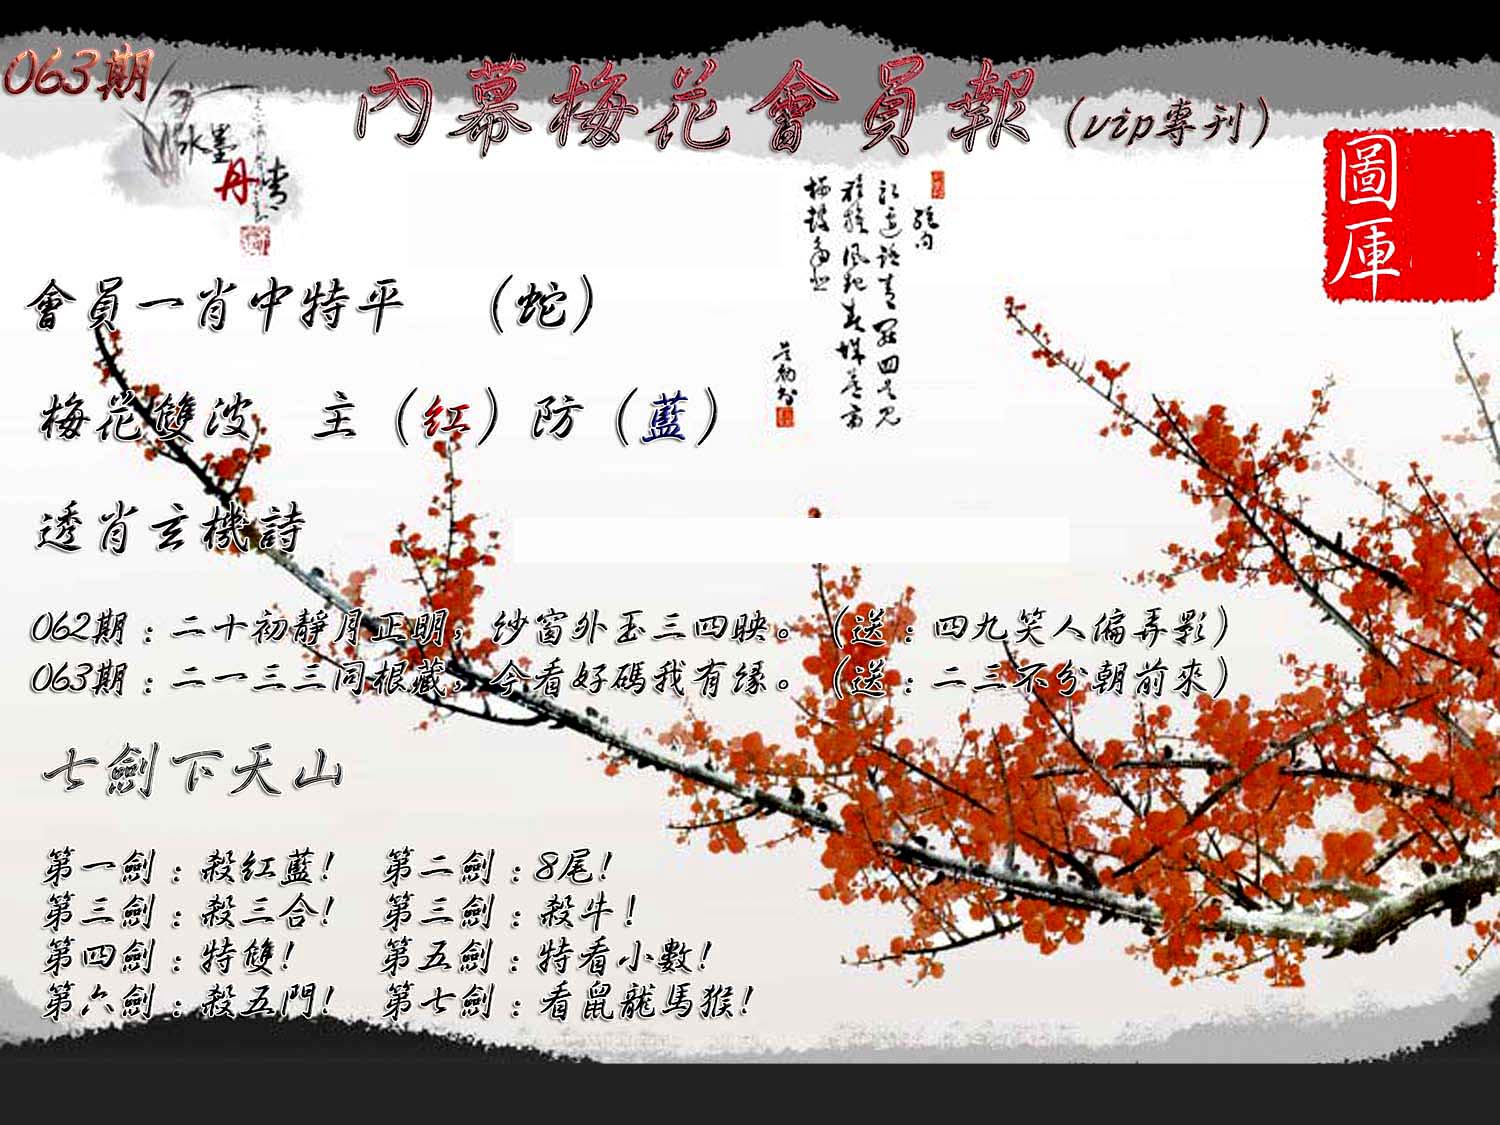 063期
內幕梅花會員報(vip專刊)
水墨
丹青
圖庫
會員一肖中特平 （蛇）
梅花雙波 主（紅）防（藍）
透肖玄機詩
062期：二十初靜月正明，紗窗外玉三四映。（送：四九笑人偏弄影）
063期：二一三三同根藏，今看好碼我有緣。（送：二三不分朝前來）
七劍下天山
第一劍：殺紅藍! 第二劍：8尾!
第三劍：殺三合! 第三劍：殺牛!
第四劍：特雙! 第五劍：特看小數!
第六劍：殺五門! 第七劍：看鼠龍馬猴!